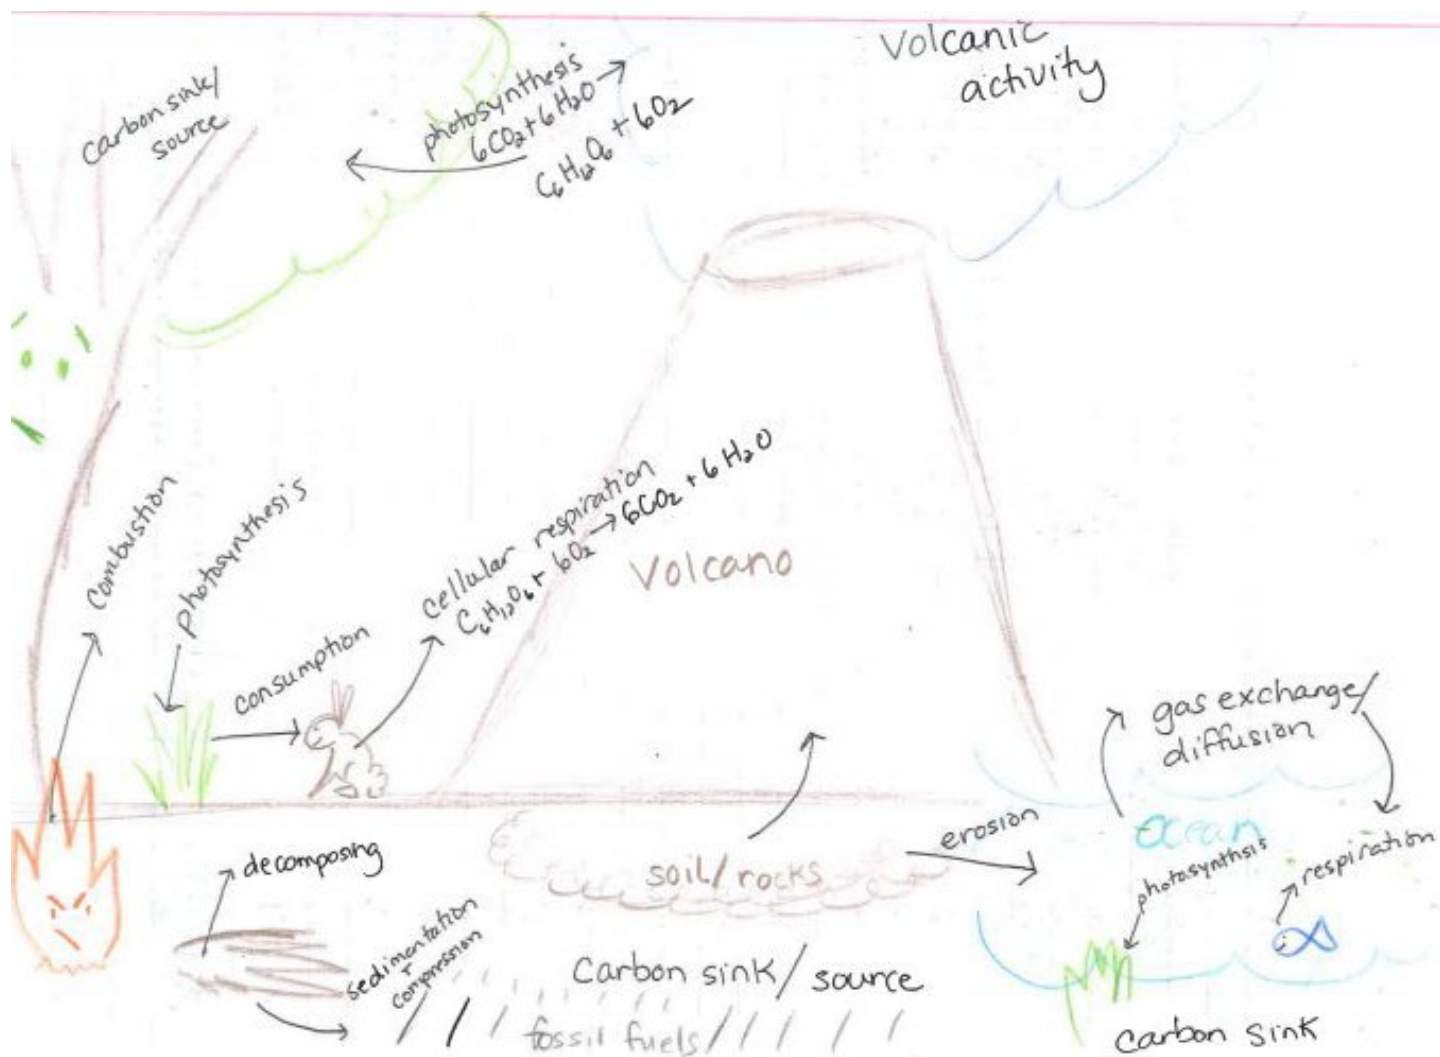 Volcanic
activity
carbon sink/
source
photosynthesis
6CO₂+6H₂O →
C₆H₁₂O₆ + 6O₂
combustion
photosynthesis
consumption
cellular respiration
C₆H₁₂O₆ + 6O₂ → 6CO₂ + 6H₂O
Volcano
gas exchange/
diffusion
ocean
erosion
photosynthsis
respiration
decomposing
soil/rocks
sedimentation
+
compression
Carbon sink/source
fossil fuels
carbon sink